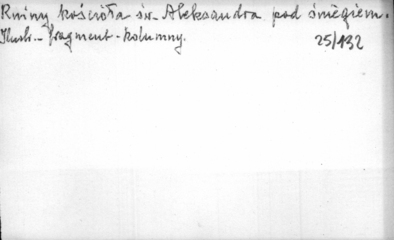 Ruiny kościoła św. Aleksandra pod śniegiem.
Ilustr. - fragment - kolumny.
25/132